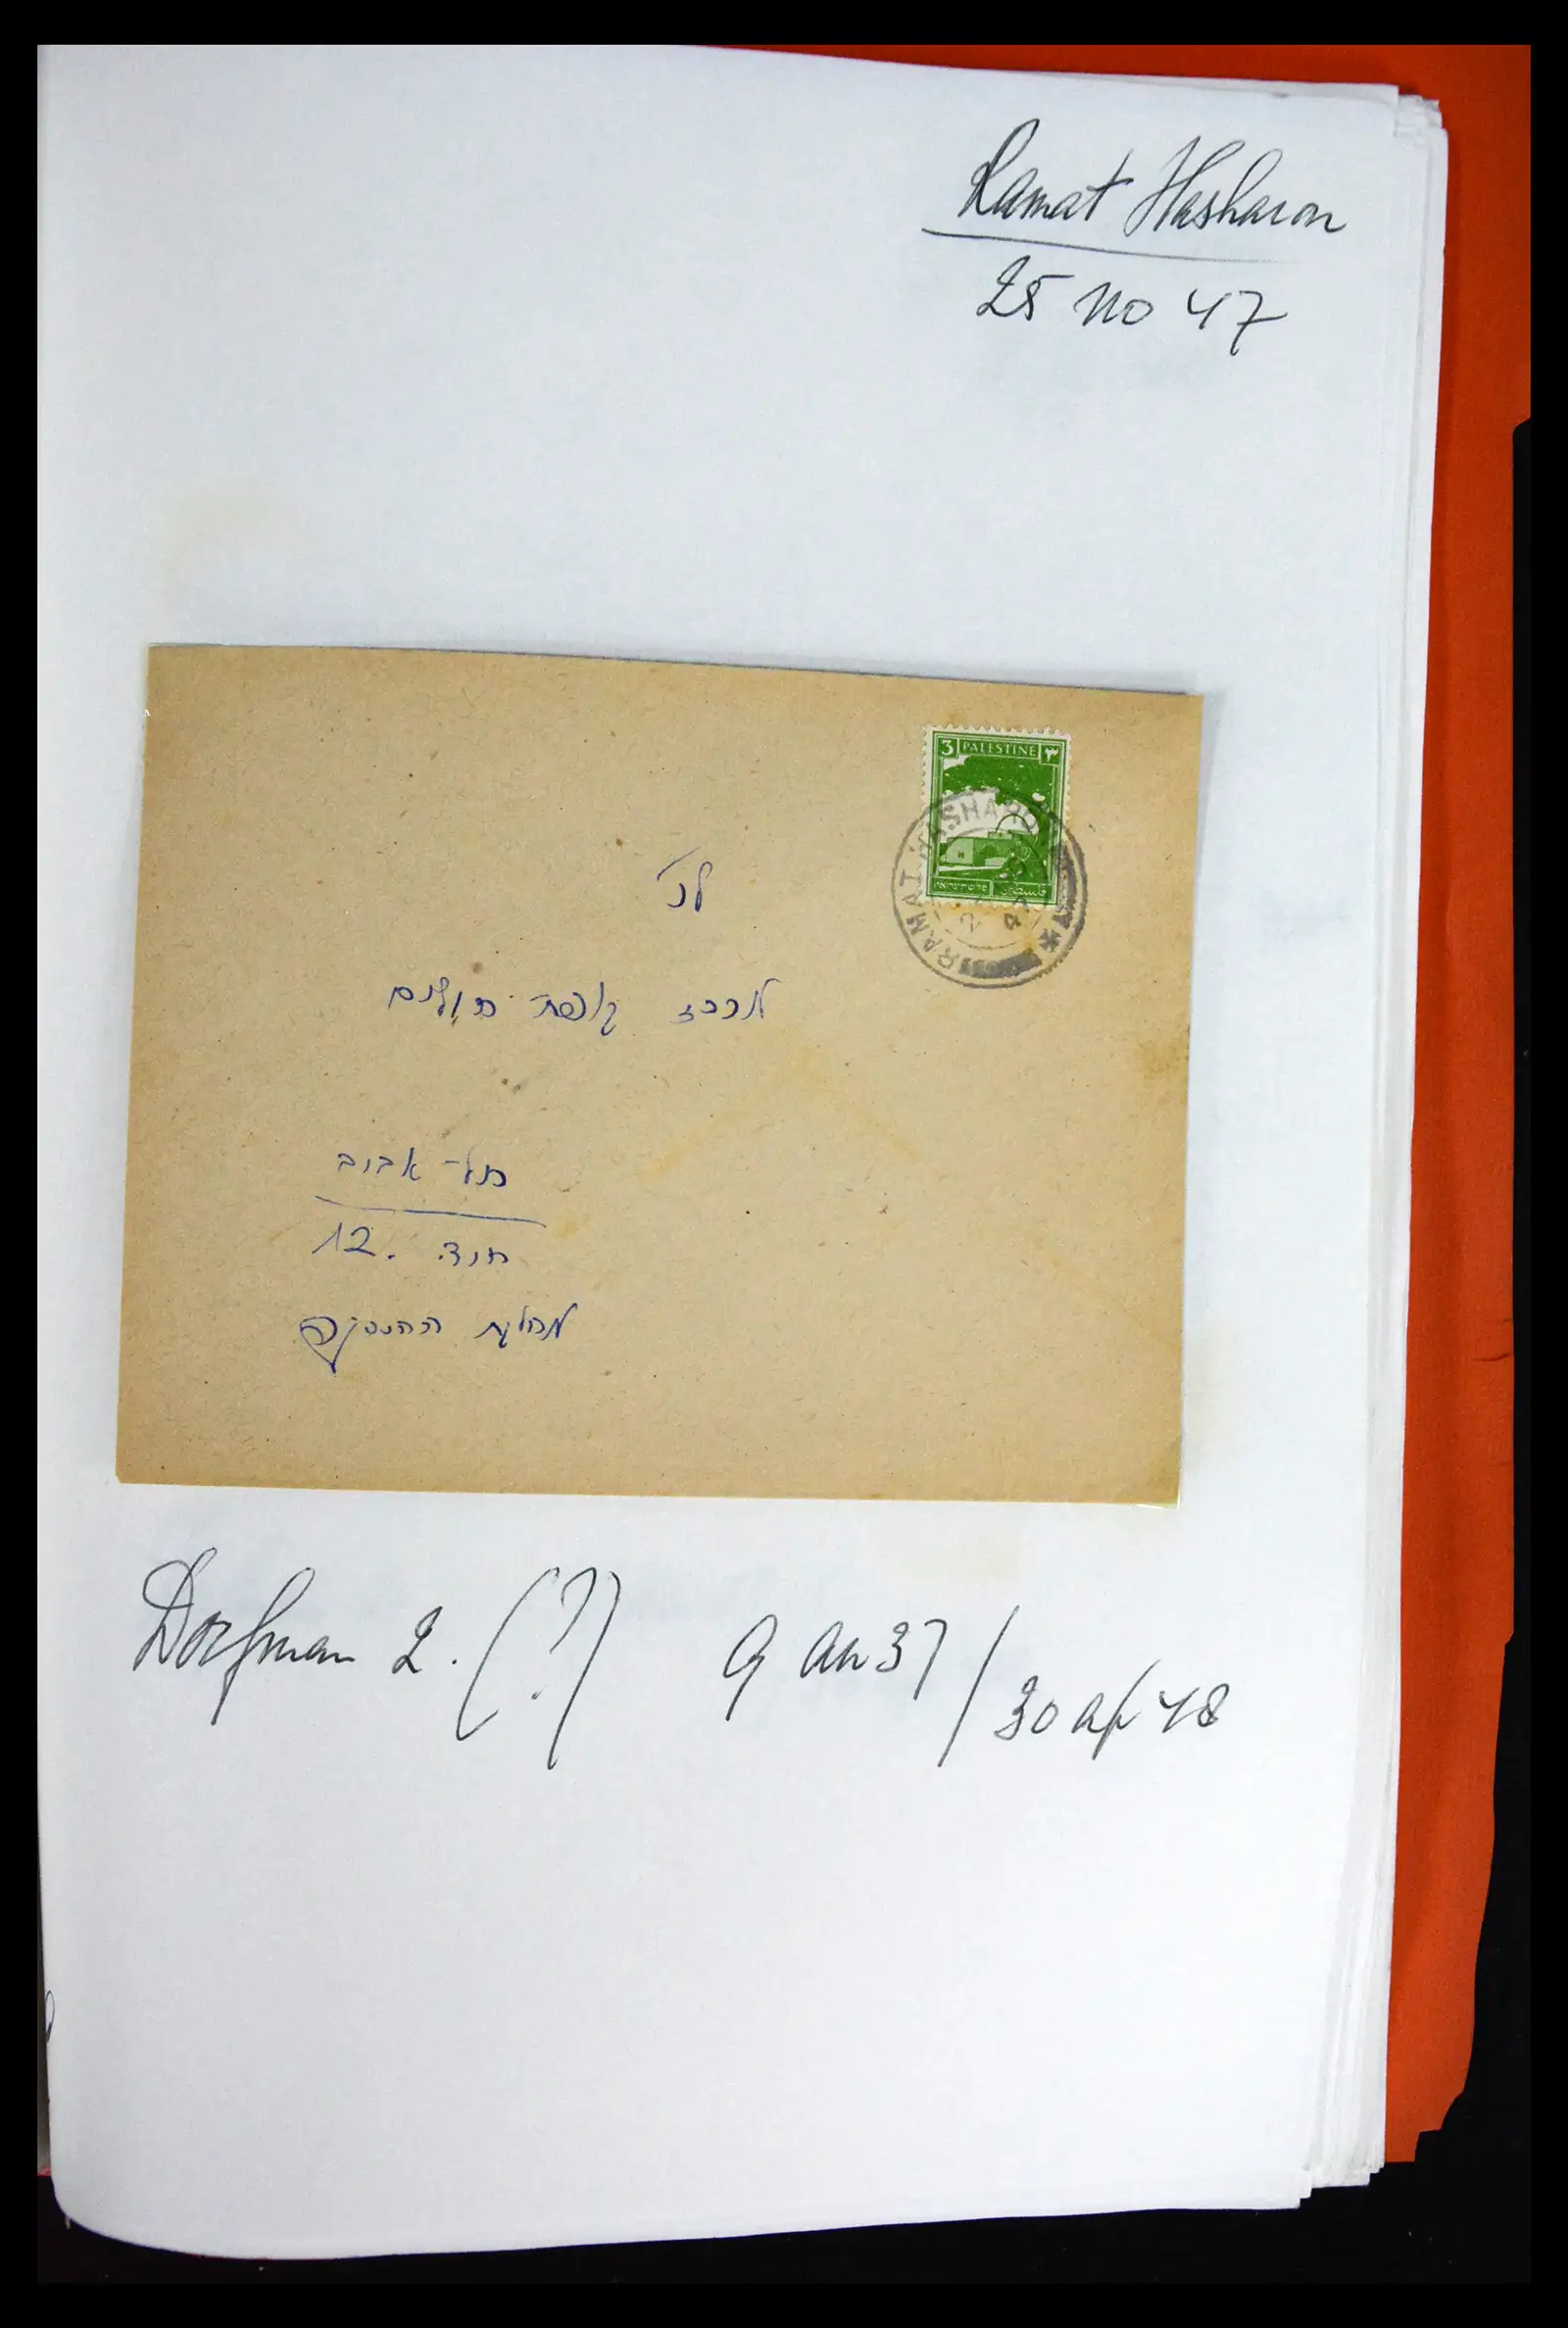 Ramat Hasharon
25 no 47
3 PALESTINE ٣
RAMAT HASHARON
47
לכ'
מרכז קופת חולים
תל-אביב
ת.ד. 12
מחלקת
Dorfman 2. (?) 9 au 37 / 30 ap 48